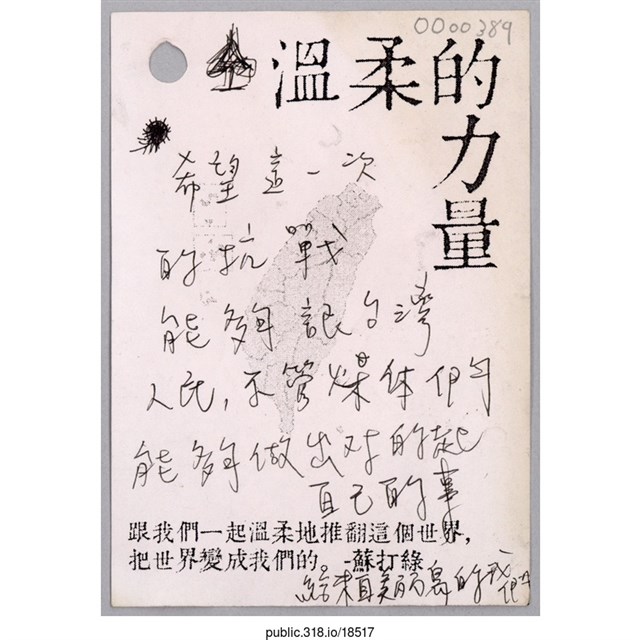 0000389
溫柔的
力量
希望這一次
的抗戰
能夠讓台灣
人民，不管媒体們
能夠做出对的起
自己的事
跟我們一起溫柔地推翻這個世界，
把世界變成我們的。-蘇打綠
給美麗島的我們
public.318.io/18517